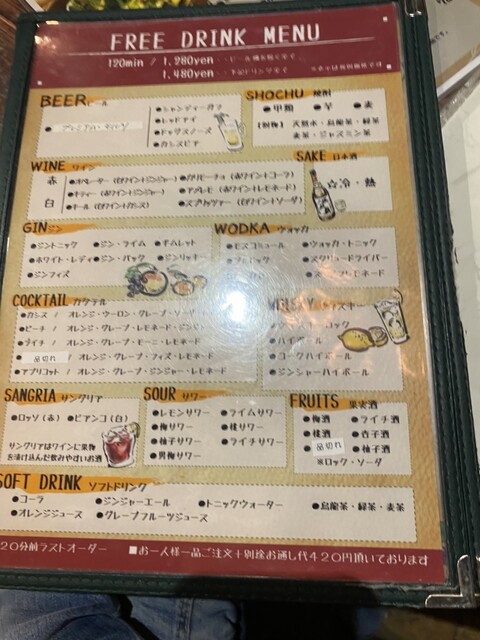 FREE DRINK MENU
120min / 1,280yen
1,480yen
BEER ビール
●シャンディーガフ
●レッドアイ
●ドッグズノーズ
●カシスビア
SHOCHU 焼酎
●甲類 ●芋 ●麦
天然水・烏龍茶・緑茶
麦茶・ジャスミン茶
WINE ワイン
赤
白
●オペレーター(白ワイン+ジンジャー)
●キティー(赤ワイン+ジンジャー)
●キール(白ワイン+カシス)
●カリモーチョ(赤ワイン+コーラ)
●アメレモ(赤ワイン+レモネード)
●スプリッツァー(白ワイン+ソーダ)
SAKE 日本酒
☆冷・熱
GIN ジン
●ジントニック ●ジン・ライム ●ギムレット
●ホワイト・レディ ●ジン・バック ●ジンリッキー
●ジンフィズ
WODKA ウォッカ
●モスコミュール ●ウォッカ・トニック
●スクリュードライバー
COCKTAIL カクテル
●カシス / オレンジ・ウーロン・グレープ・ソーダ
●ピーチ / オレンジ・グレープ・レモネード・ジンジャー
●ライチ / オレンジ・グレープ・トニック・レモネード
品切れ / オレンジ・グレープ・フィズ・レモネード
●アプリコット / オレンジ・グレープ・ジンジャー・レモネード
WHISKY ウィスキー
●ハイボール
●コークハイボール
●ジンジャーハイボール
SANGRIA サングリア
●ロッソ(赤) ●ビアンコ(白)
サングリアはワインに果物
を漬け込んだ飲みやすいお酒
SOUR サワー
●レモンサワー ●ライムサワー
●梅サワー ●桃サワー
●柚子サワー ●ライチサワー
●男梅サワー
FRUITS 果実酒
●梅酒 ●ライチ酒
●桃酒 ●杏子酒
品切れ ●柚子酒
※ロック・ソーダ
SOFT DRINK ソフトドリンク
●コーラ ●ジンジャーエール ●トニックウォーター ●烏龍茶・緑茶・麦茶
●オレンジジュース ●グレープフルーツジュース
20分前ラストオーダー ■お一人様一品ご注文+別途お通し代420円頂いております